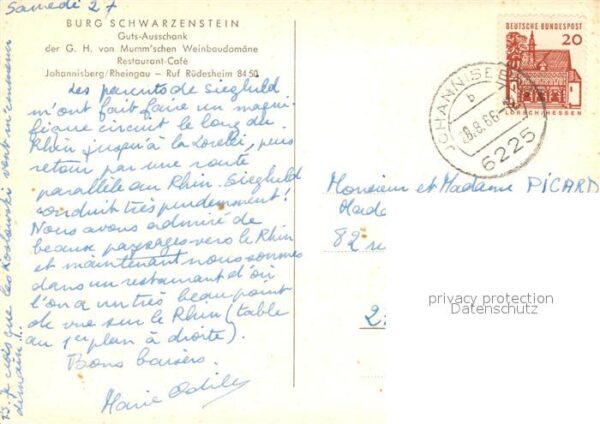 Samedi 27
BURG SCHWARZENSTEIN
Guts-Ausschank
der G. H. von Mumm'schen Weinbaudomäne
Restaurant-Café
Johannisberg/Rheingau – Ruf Rüdesheim 84 50
Les parents de Sieghild
m'ont fait faire un magni-
fique circuit le long du
Rhin jusqu'à la Lorelei, puis
retour par une route
parallèle au Rhin. Sieghild
conduit très prudemment!
Nous avons admiré de
beaux paysages vers le Rhin
et maintenant nous sommes
dans un restaurant d'où
l'on a un très beau point
de vue sur le Rhin (table
au 1er plan à droite).
Bons baisers.
Marie Odile
je crois que les Koslowski vont m'emmener
demain!
DEUTSCHE BUNDESPOST
20
LORSCH/HESSEN
JOHANNISBERG
b
28.8.66
6225
Monsieur et Madame PICARD
82
privacy protection
Datenschutz